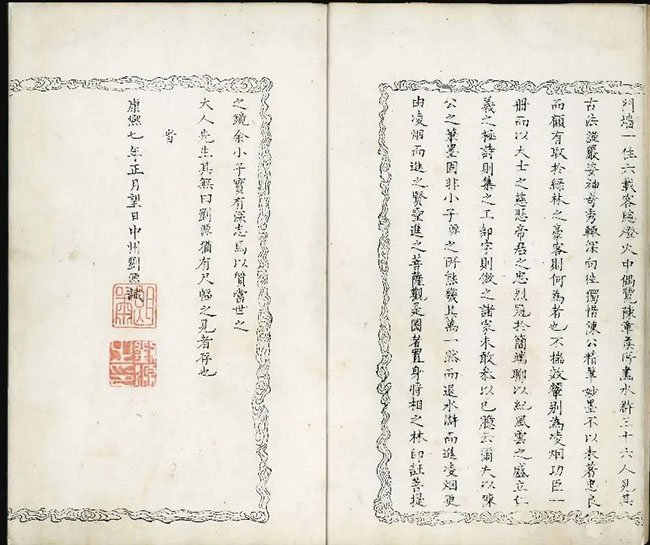 門墻一住六載客牕燈火中偶覽陳章侯所畫水滸三十六人見其
古法謹嚴姿神奇秀輒深向徃獨惜陳公精筆妙墨不以表著忠良
而顧有取於綠林之豪客則何為者也不揣效顰別為凌烟功臣一
冊而以大士之慈悲帝君之忠烈冠於簡端聊以紀風雲之盛立仁
義之極詩則集之工部字則倣之諸家未敢私以己臆云爾夫以陳
公之筆墨固非小子源之所能幾其萬一然而退水滸而進凌烟更
由凌烟而進之賢聖進之菩薩觀是圖者置身將相之林印証菩提
之境余小子實有深志焉以質當世之
大人先生其無曰劉源猶有尺幅之見者存也
旹
康熙七年正月望日中州劉源識